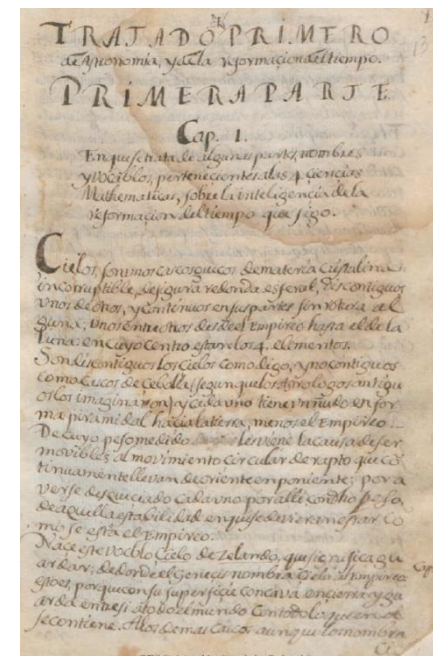 TRATADO PRIMERO
de Astronomia, y de la reformacion del tiempo.
PRIMERA PARTE
Cap. 1.
En que se trata de algunas partes, nombres
y vocablos, pertenecientes a las 4 ciencias
Mathematicas, sobre la inteligencia de la
reformacion del tiempo que sigo.
Cielos, son unos cascos huecos de materia cristalina
incorruptible, de figura redonda esferal, discontiguos
unos de otros, y continuos en sus partes sin rotura al
guna; unos entre otros desde el Empireo hasta el de la
Luna: en cuyo centro estan los 4 elementos.
Son discontiguos los cielos como digo, y no contiguos
como cascos de cebolla (segun que los Astrologos antigu
os los imaginaron) y cada uno tiene un ñudo en for
ma piramidal hacia la tierra, menos el Empireo
De cuyo peso medido les viene la causa de ser
movibles, al movimiento circular de rapto que co
tinuamente llevan de oriente en poniente; por a
verse desquiciado cada uno por alli con dho peso,
de aquella estabilidad en que se devieren estar, co
mo se está el Empireo.
Nace este vocablo Cielo de Zelando, que significa gu
ardar; de donde el Genecis nombra Cielo al Empireo
esto es, porque con su superficie concava encierra y gu
arda entre si a todo el mundo con todo lo que en el
se contiene. A los demas cascos aunque los nombra
Ci
13